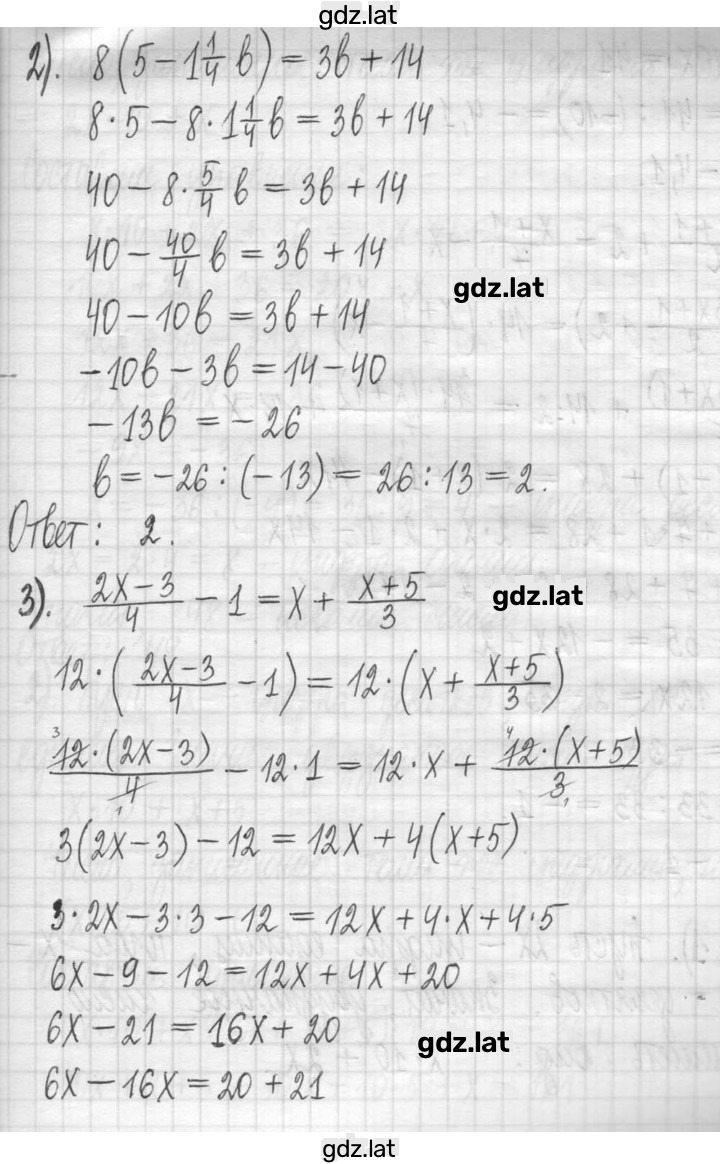 gdz.lat
2). 8(5 - 1 1/4 в) = 3в + 14
8·5 - 8·1 1/4 в = 3в + 14
40 - 8·5/4 в = 3в + 14
40 - 40/4 в = 3в + 14
gdz.lat
40 - 10в = 3в + 14
-10в - 3в = 14 - 40
-13в = -26
в = -26 : (-13) = 26 : 13 = 2.
Ответ: 2.
3). (2x-3)/4 - 1 = x + (x+5)/3
gdz.lat
12·((2x-3)/4 - 1) = 12·(x + (x+5)/3)
³12·(2x-3)/4₁ - 12·1 = 12·x + ⁴12·(x+5)/3₁
3(2x-3) - 12 = 12x + 4(x+5)
3·2x - 3·3 - 12 = 12x + 4·x + 4·5
6x - 9 - 12 = 12x + 4x + 20
6x - 21 = 16x + 20
gdz.lat
6x - 16x = 20 + 21
gdz.lat